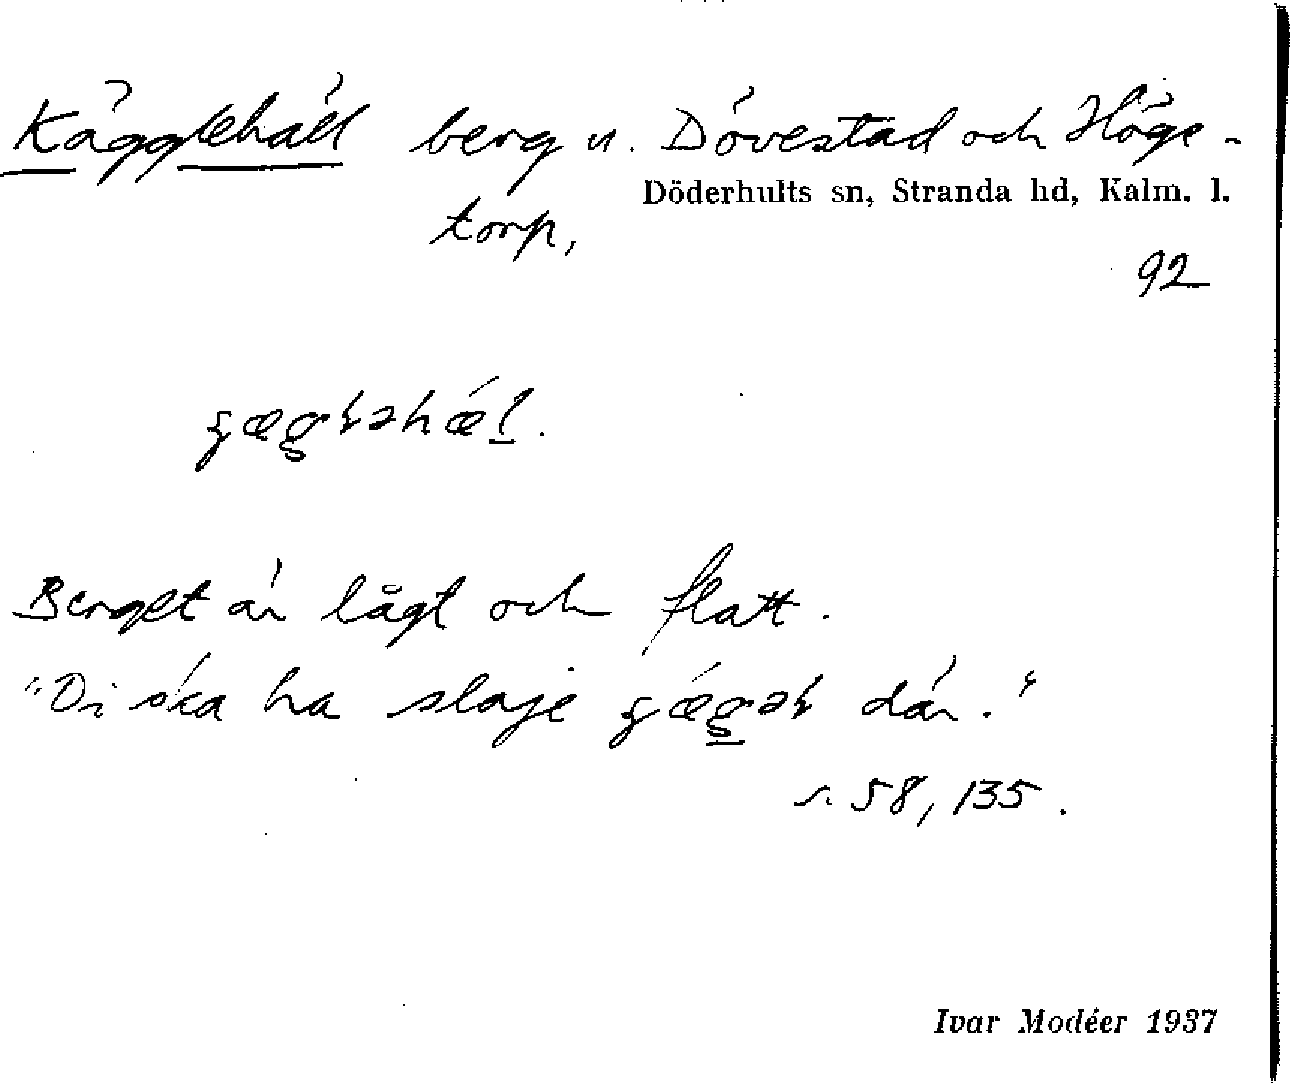 Kägglehäll berg u. Dövestad och Höge-
Döderhults sn, Stranda hd, Kalm. l.
torp,
92
Berget är lågt och flatt.
"Di ska ha slaje där."
s. 58, 135.
Ivar Modéer 1937